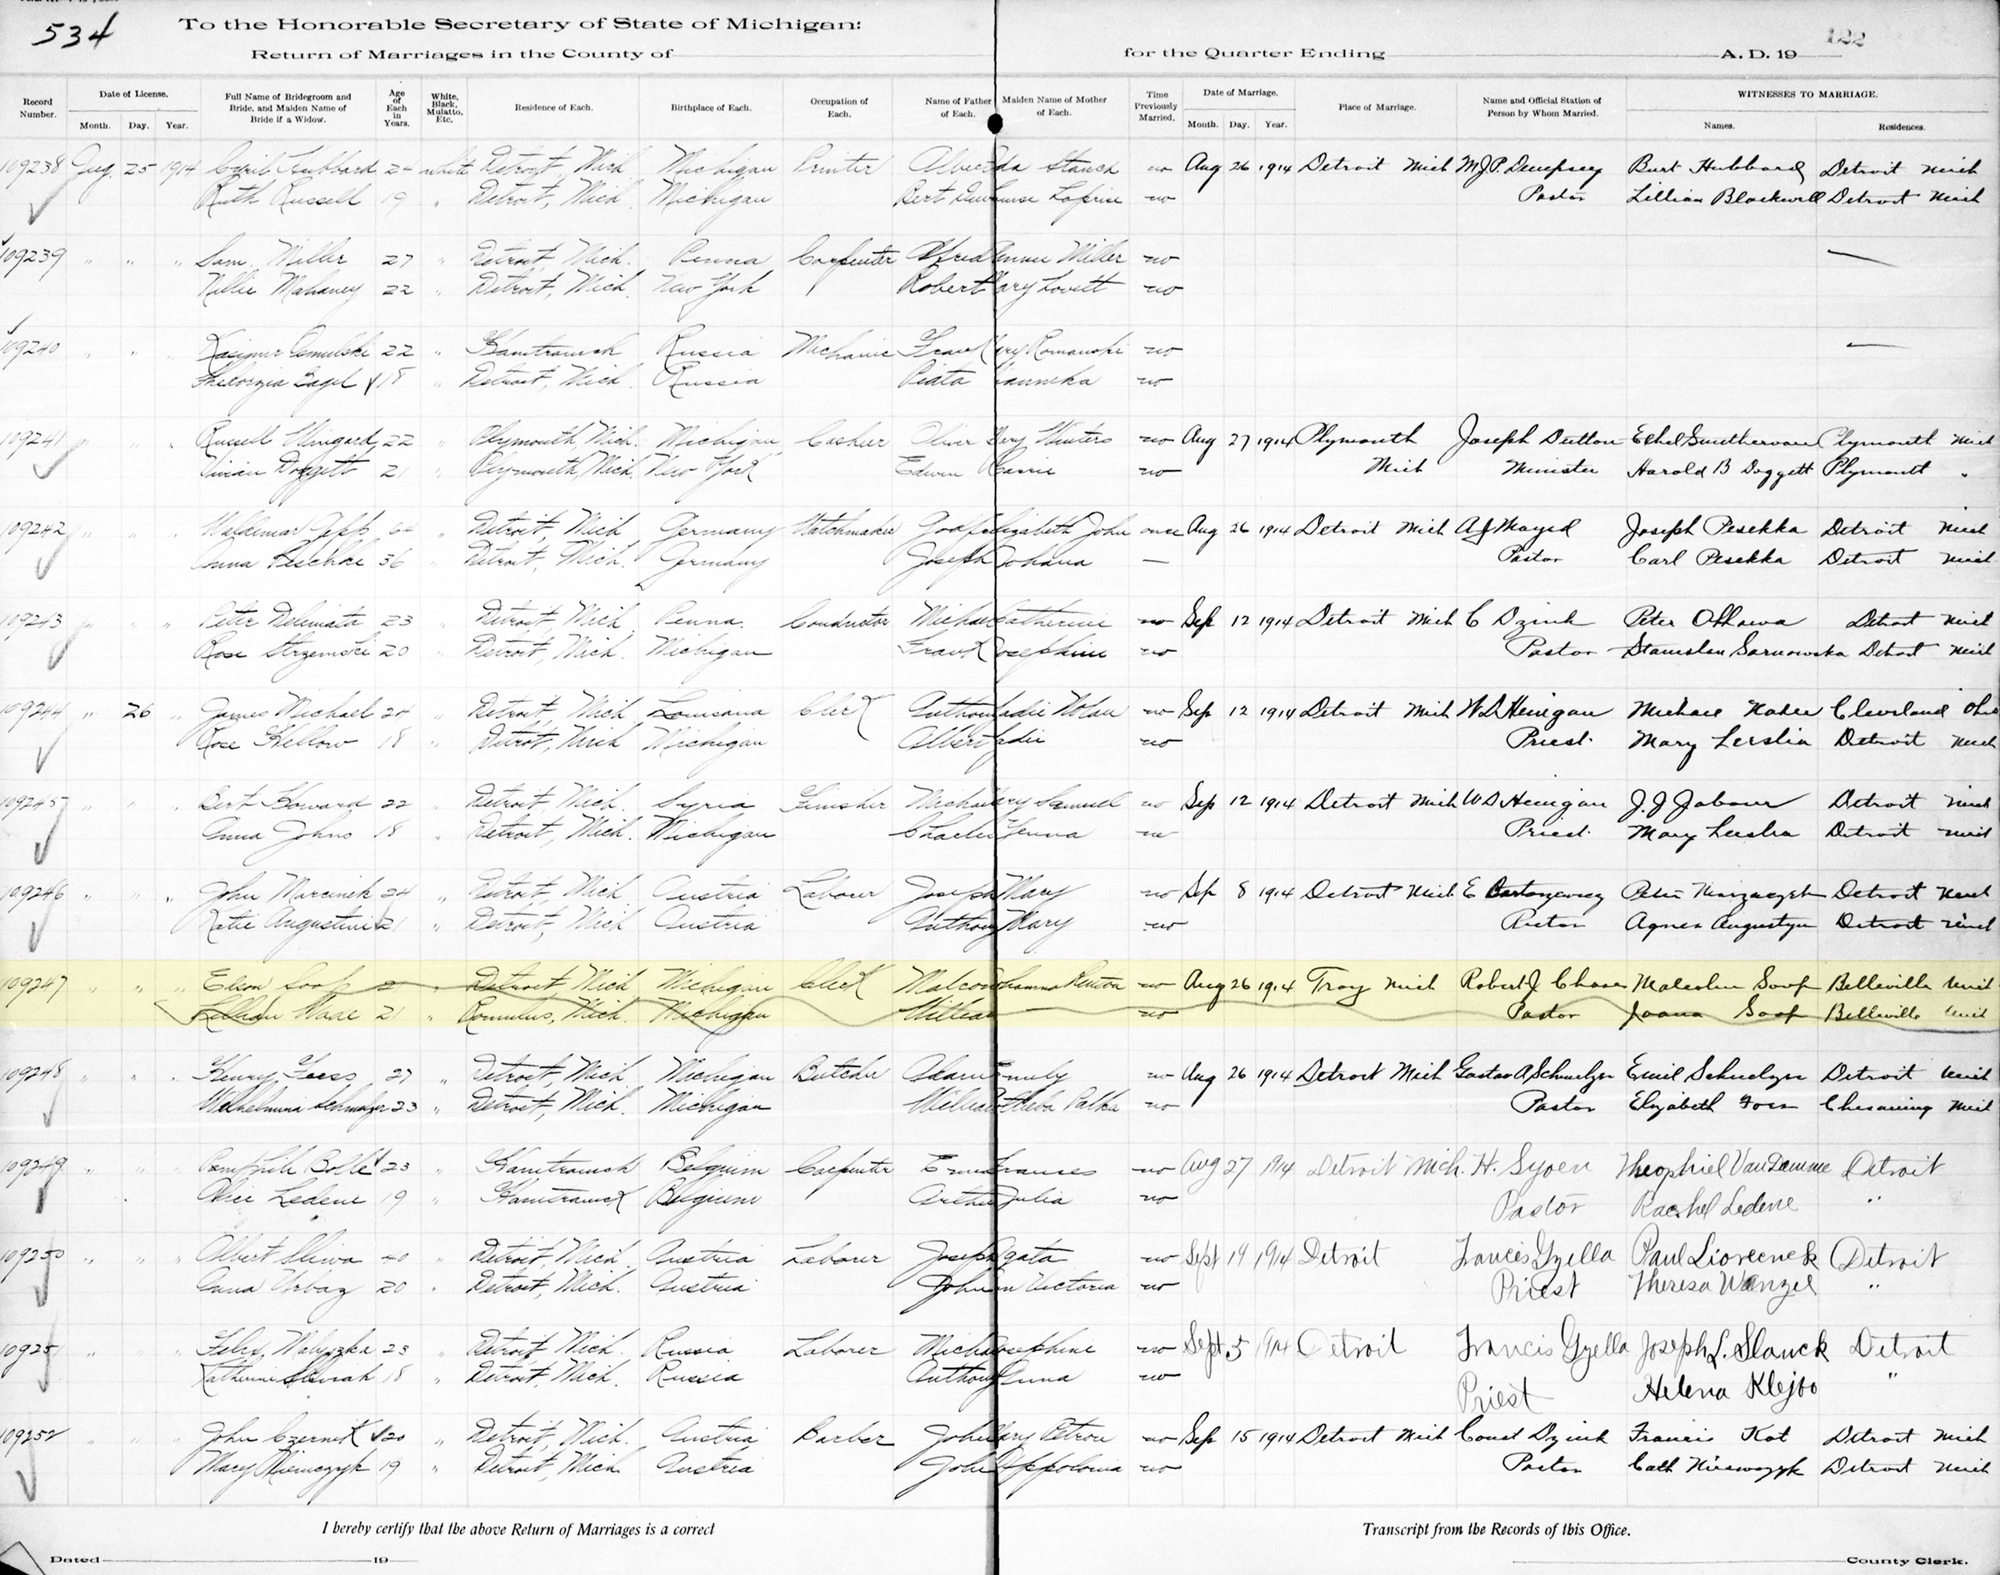 534
To the Honorable Secretary of State of Michigan:
122
Return of Marriages in the County of for the Quarter Ending A. D. 19
Record Number. Date of License. Month. Day. Year. Full Name of Bridegroom and Bride, and Maiden Name of Bride if a Widow. Age of Each in Years. White, Black, Mulatto, Etc. Residence of Each. Birthplace of Each. Occupation of Each. Name of Father of Each. Maiden Name of Mother of Each. Time Previously Married. Date of Marriage. Month. Day. Year. Place of Marriage. Name and Official Station of Person by Whom Married. WITNESSES TO MARRIAGE. Names. Residences.
109238 Aug. 25 1914 Hubbard 24 white Detroit, Mich Michigan Printer Albert no Aug 26 1914 Detroit Mich M.J.P. Dempsey Burt Hubbard Detroit Mich
Ruth Russell 19 " Detroit, Mich Michigan Bert no Pastor Lillian Blackwell Detroit Mich
109239 " " " Sam Miller 27 " Detroit, Mich. Penna Carpenter Alfred Miller no
Nellie Mahaney 22 " Detroit, Mich. New York Robert ary Lovett no
109240 " " " 22 " Hamtramck Russia Mechanic Frank ary Romanski no
18 " Detroit, Mich. Russia no
109241 " " " Russell Wingard 22 " Plymouth, Mich. Michigan Cashier Oliver Winters no Aug 27 1914 Plymouth Joseph Dutton Ethel Plymouth Mich
Vivian Doggett 21 " Plymouth, Mich. New York Edwin Carrie no Mich Minister Harold B Doggett Plymouth "
109242 " " " 64 " Detroit, Mich Germany Watchmaker lizabeth John once Aug 26 1914 Detroit Mich Joseph Peschka Detroit Mich
Anna 36 " Detroit, Mich. Germany Joseph Johana — Pastor Carl Peschka Detroit Mich
109243 " " " Peter 23 " Detroit, Mich. Penna. Conductor Michael Catherine no Sep 12 1914 Detroit Mich C Dzink Peter Detroit Mich
Rose Strzemski 20 " Detroit, Mich. Michigan Frank Josephine no Pastor Stanislau Sarnowska Detroit Mich
109244 " 26 " James Michael 24 " Detroit, Mich Louisana Clerk Anthony adie Nolan no Sep 12 1914 Detroit Mich W D Henigan Michael Cleveland Ohio
Rose Kellow 18 " Detroit, Mich Michigan Albert adie no Priest. Mary Detroit Mich
109245 " " " Bert Howard 22 " Detroit, Mich. Syria Finisher Michael ary Samuel no Sep 12 1914 Detroit Mich W D Henigan J. J Jabour Detroit Mich
Anna Johns 18 " Detroit, Mich. Michigan Charles no Priest. Mary Detroit Mich
109246 " " " John Marcinek 24 " Detroit, Mich Austria Laborer Joseph Mary no Sep 8 1914 Detroit Mich E Detroit Mich
Katie Augustin 21 " Detroit, Mich Austria Anthony Mary no Pastor Agnes Augustyn Detroit Mich
109247 " " " Elson Soop " Detroit, Mich Michigan Clerk Malcom no Aug 26 1914 Troy Mich Robert J. Chase Malcolm Soop Belleville Mich
Lillian 21 " Romulus, Mich. Michigan William — no Pastor Joana Soop Belleville Mich
109248 " " " Henry 27 " Detroit, Mich Michigan Butcher Adam Emily no Aug 26 1914 Detroit Mich Gustav A Emil Detroit Mich
Wilhelmina 23 " Detroit, Mich. Michigan William no Pastor Elizabeth Chesaning Mich
109249 " " " 23 " Hamtramck Belgium Carpenter Frances no Aug 27 1914 Detroit Mich. H. Syoen Theophiel VanDamme Detroit
Alice Ledene 19 " Hamtramck Belgium Arthur Julia no Pastor Rachel Ledene "
109250 " " " Albert Sliwa 40 " Detroit, Mich. Austria Laborer Joseph Agata no Sept 19 1914 Detroit Francis Gzella Paul Detroit
Anna 20 " Detroit, Mich. Austria John Victoria no Priest Theresa Wenzel "
10925 " " " Felix 23 " Detroit, Mich. Russia Laborer Michael Josephine no Sept 5 1914 Detroit Francis Gzella Joseph L. Slanck Detroit
Katherine 18 " Detroit, Mich. Russia Anthony Anna no Priest Helena Klejbo "
109252 " " " John Czernik 20 " Detroit, Mich. Austria Barber John ary Petron no Sep 15 1914 Detroit Mich Const Dzink Francis Kot Detroit Mich
Mary Niemczyk 19 " Detroit, Mich. Austria John Appolonia no Pastor Cath Detroit Mich
I hereby certify that the above Return of Marriages is a correct Transcript from the Records of this Office.
Dated 19 County Clerk.